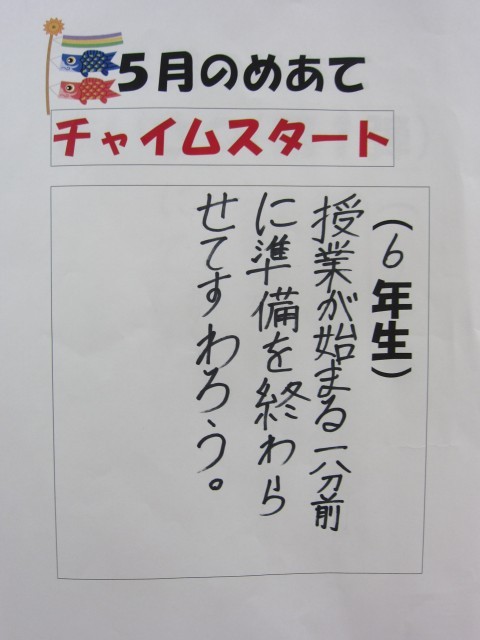 5月のめあて
チャイムスタート
(6年生)
授業が始まる一分前
に準備を終わら
せてすわろう。